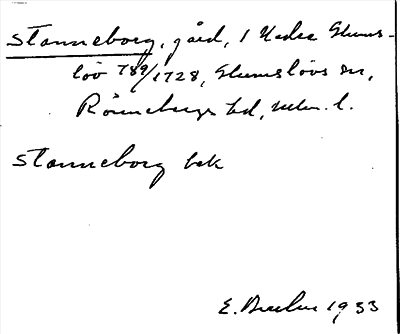 Stanneborg, gård, 1 Nedra Glums-
löv 789/1728, Glumslövs sn,
Rönnebergs hd, Malm. l.
Stanneborg bek
E. 1933